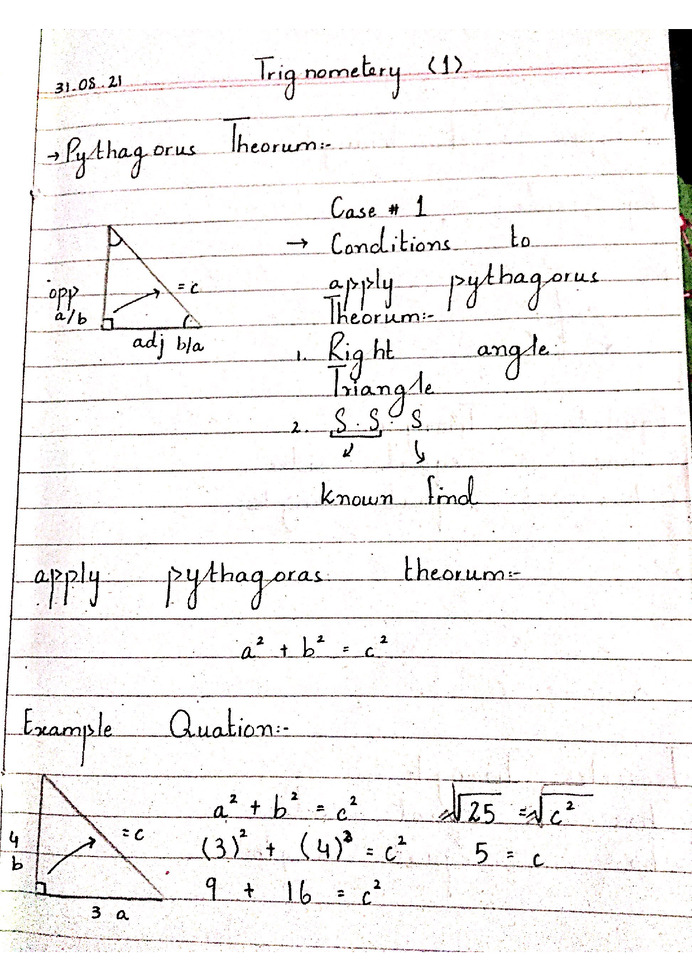 31.08.21
Trignometery (1)
→ Pythagorus Theorum:-
Case # 1
→ Conditions to
apply pythagorus
Theorum:-
1. Right angle
Triangle
2. S.S.S
known find
opp
a/b
= c
adj b/a
apply pythagoras theorum:-
a² + b² = c²
Example Quation:-
4
b
= c
3 a
a² + b² = c²
(3)² + (4)² = c²
9 + 16 = c²
√25 = √c²
5 = c